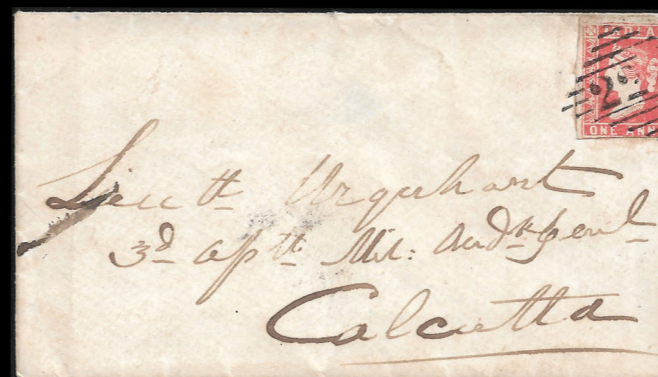 INDIA
ONE ANN
Lieutt Urquhart
3d Asstt Mil: Audr Genl
Calcutta